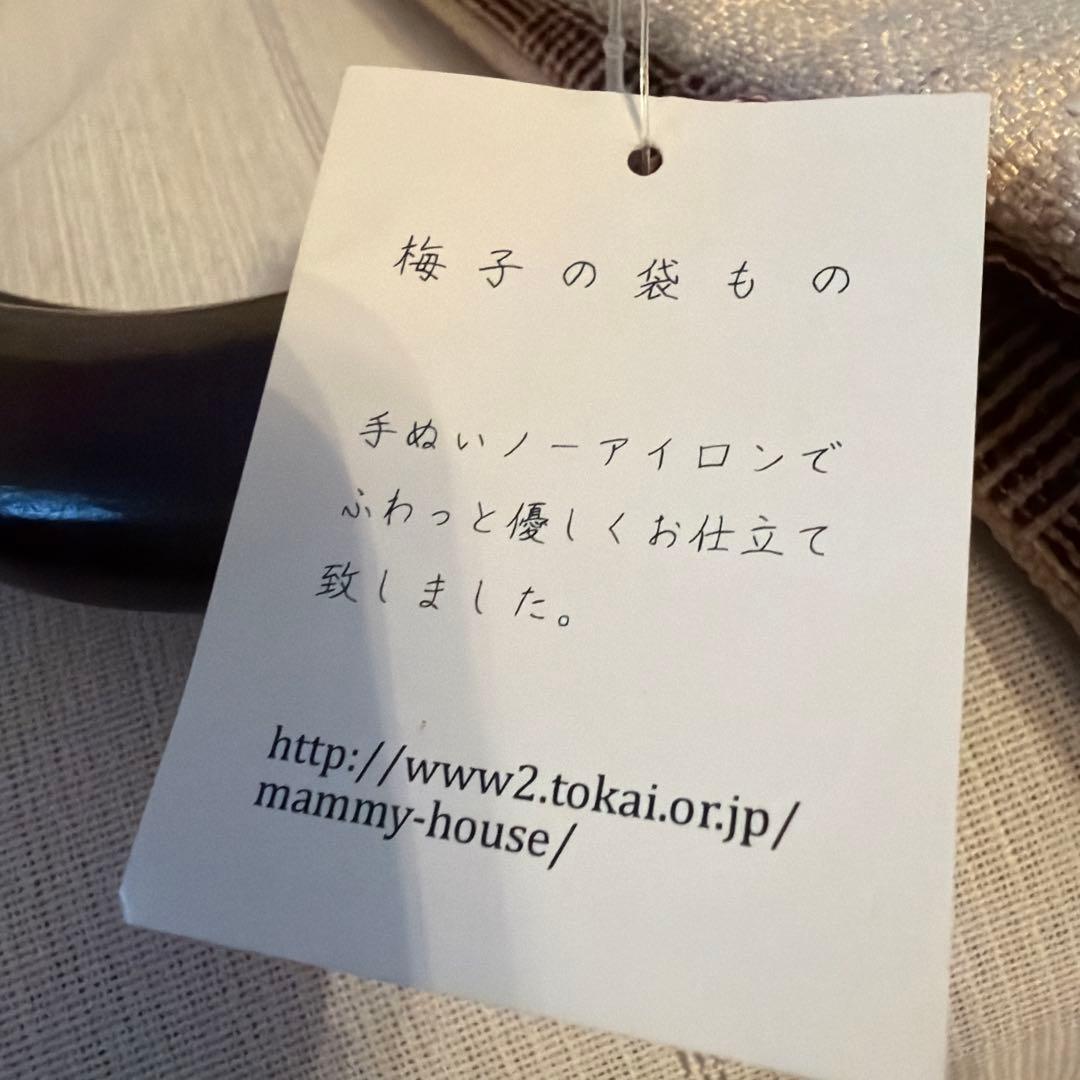 梅子の袋もの
手ぬいノーアイロンで
ふわっと優しくお仕立て
致しました。
http://www2.tokai.or.jp/
mammy-house/